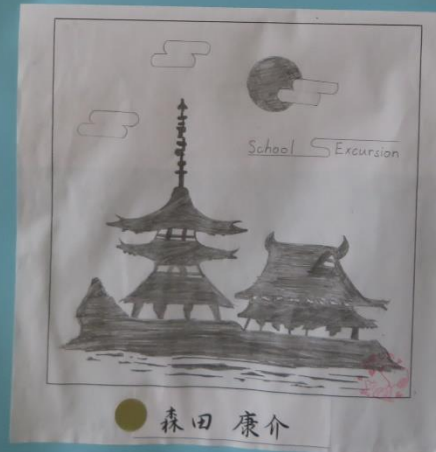 School Excursion
森田 康介